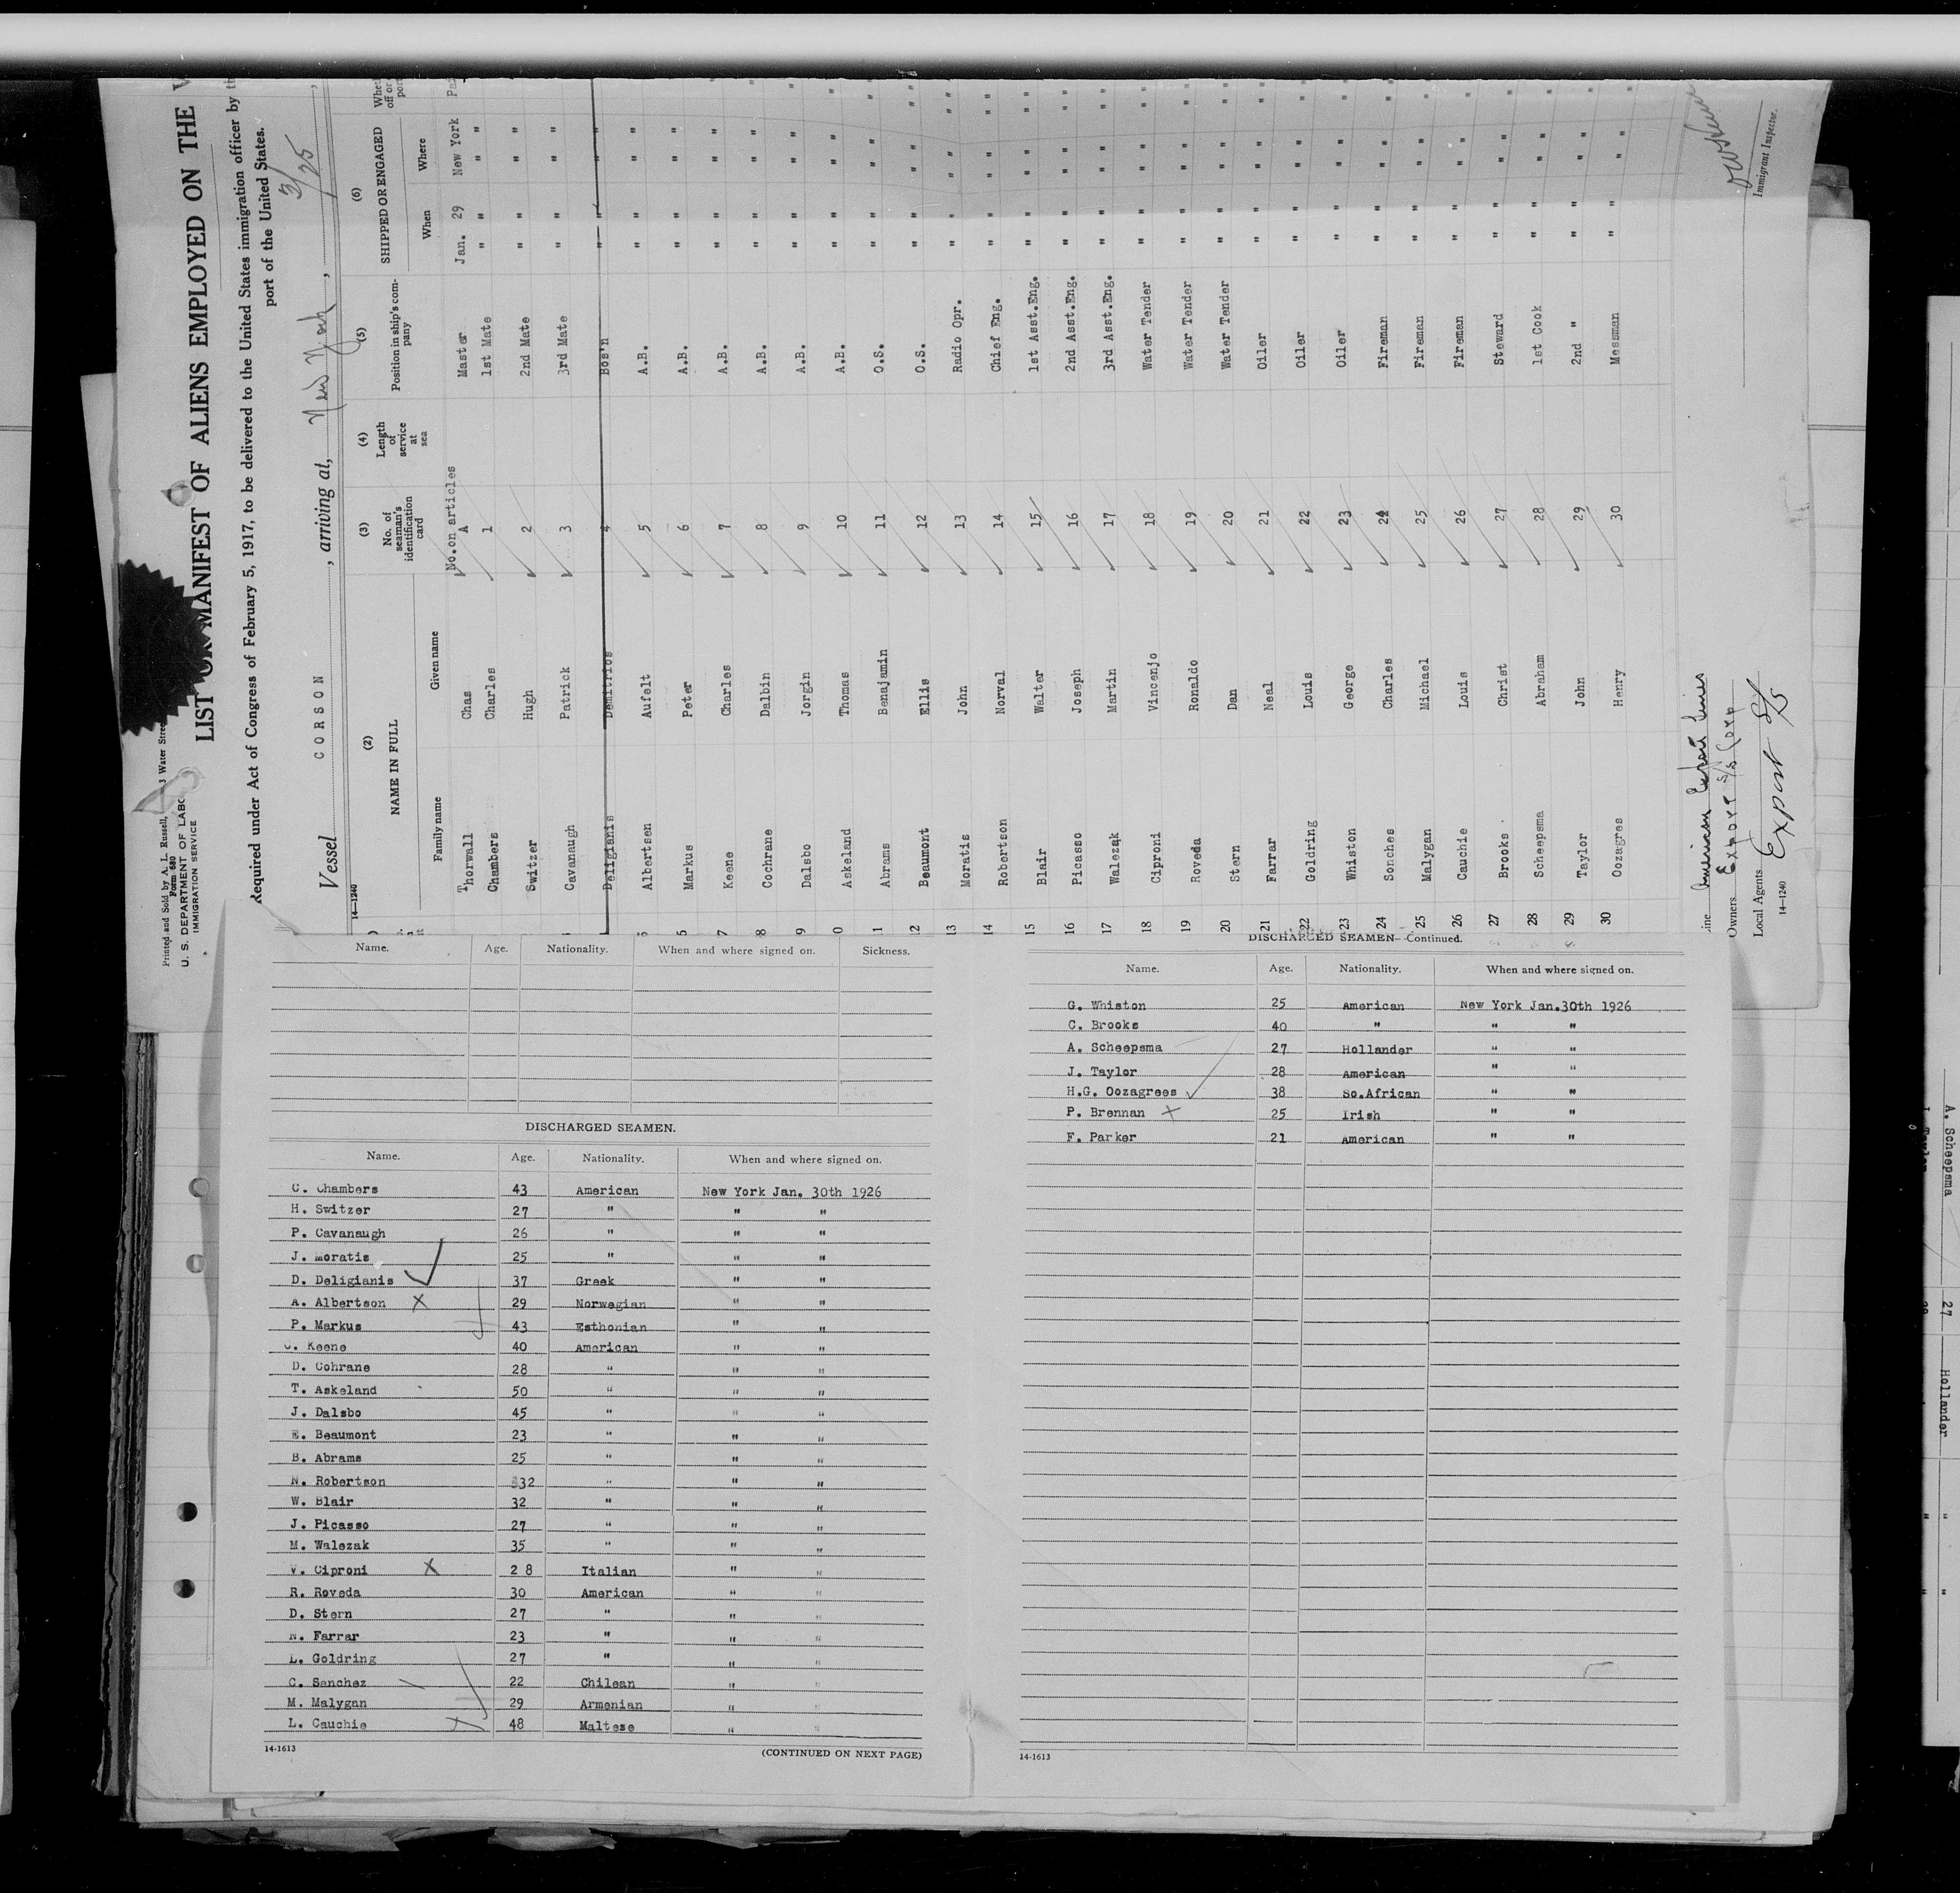 Printed and Sold by A. L. Russell, 3 Water Stre
Form 680
U. S. DEPARTMENT OF LABO
IMMIGRATION SERVICE
LIST OR MANIFEST OF ALIENS EMPLOYED ON THE
Required under Act of Congress of February 5, 1917, to be delivered to the United States immigration officer by
port of the United States.
Vessel CORSON, arriving at, New York, 3/25
14—1240
(2) (3) (4) (5) (6)
NAME IN FULL No. of seaman's identification card Length of service at sea Position in ship's company SHIPPED OR ENGAGED
Family name Given name When Where
No. on articles
Thorwall Chas A Master Jan. 29 New York
Chambers Charles 1 1st Mate " " " "
Switzer Hugh 2 2nd Mate " " " "
Cavanaugh Patrick 3 3rd Mate " " " "
Deligianis Demitrios 4 Bos'n " " " "
Albertsen Aufelt 5 A.B. " " " "
Markus Peter 6 A.B. " " " "
Keene Charles 7 A.B. " " " "
Cochrane Dalbin 8 A.B. " " " "
Dalsbo Jorgin 9 A.B. " " " "
Askeland Thomas 10 A.B. " " " "
Abrams Benajamin 11 O.S. " " " "
Beaumont Ellis 12 O.S. " " " "
13 Moratis John 13 Radio Opr. " " " "
14 Robertson Norval 14 Chief Eng. " " " "
15 Blair Walter 15 1st Asst.Eng. " " " "
16 Picasso Joseph 16 2nd Asst.Eng. " " " "
17 Walezak Martin 17 3rd Asst.Eng. " " " "
18 Ciproni Vincenjo 18 Water Tender " " " "
19 Roveda Ronaldo 19 Water Tender " " " "
20 Stern Dan 20 Water Tender " " " "
21 Farrar Neal 21 Oiler " " " "
22 Goldring Louis 22 Oiler " " " "
23 Whiston George 23 Oiler " " " "
24 Sonches Charles 24 Fireman " " " "
25 Malygan Michael 25 Fireman " " " "
26 Cauchie Louis 26 Fireman " " " "
27 Brooks Christ 27 Steward " " " "
28 Scheepsma Abraham 28 1st Cook " " " "
29 Taylor John 29 2nd " " " " "
30 Oozagres Henry 30 Messman " " " "
ine American Export Lines
Owners Export S/S Corp
Local Agents Export S/S
14—1240
Immigrant Inspector.
Name. Age. Nationality. When and where signed on. Sickness.
DISCHARGED SEAMEN.
Name. Age. Nationality. When and where signed on.
C. Chambers 43 American New York Jan. 30th 1926
H. Switzer 27 " " "
P. Cavanaugh 26 " " "
J. Moratis 25 " " "
D. Deligianis 37 Greek " "
A. Albertson X 29 Norwegian " "
P. Markus 43 Esthonian " "
C. Keene 40 American " "
D. Cohrane 28 " " "
T. Askeland 50 " " "
J. Dalsbo 45 " " "
E. Beaumont 23 " " "
B. Abrams 25 " " "
N. Robertson 32 " " "
W. Blair 32 " " "
J. Picasso 27 " " "
M. Walezak 35 " " "
V. Ciproni X 2 8 Italian " "
R. Roveda 30 American " "
D. Stern 27 " " "
N. Farrar 23 " " "
L. Goldring 27 " " "
C. Sanchez 22 Chilean " "
M. Malygan 29 Armenian " "
L. Cauchie X 48 Maltese " "
14-1613 (CONTINUED ON NEXT PAGE)
DISCHARGED SEAMEN—Continued.
Name. Age. Nationality. When and where signed on.
G. Whiston 25 American New York Jan.30th 1926
C. Brooks 40 " " "
A. Scheepsma 27 Hollander " "
J. Taylor 28 American " "
H.G. Oozagrees 38 So.African " "
P. Brennan X 25 Irish " "
F. Parker 21 American " "
14-1613
A. Scheepsma 27 Hollander "